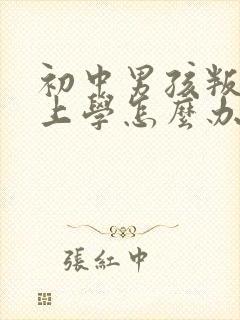 初中男孩叛
上學怎麼办
張紅中